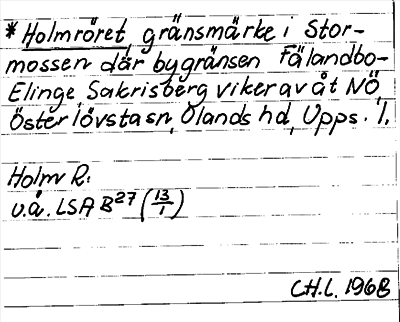 *Holmröret gränsmärke i Stor-
mossen där bygränsen Fälandbo-
Elinge, Sakrisberg viker av åt NÖ,
Österlövsta sn, Olands hd, Upps. l.
Holm R:
u.å. LSA B27 (13/1)
C.H.L. 1968